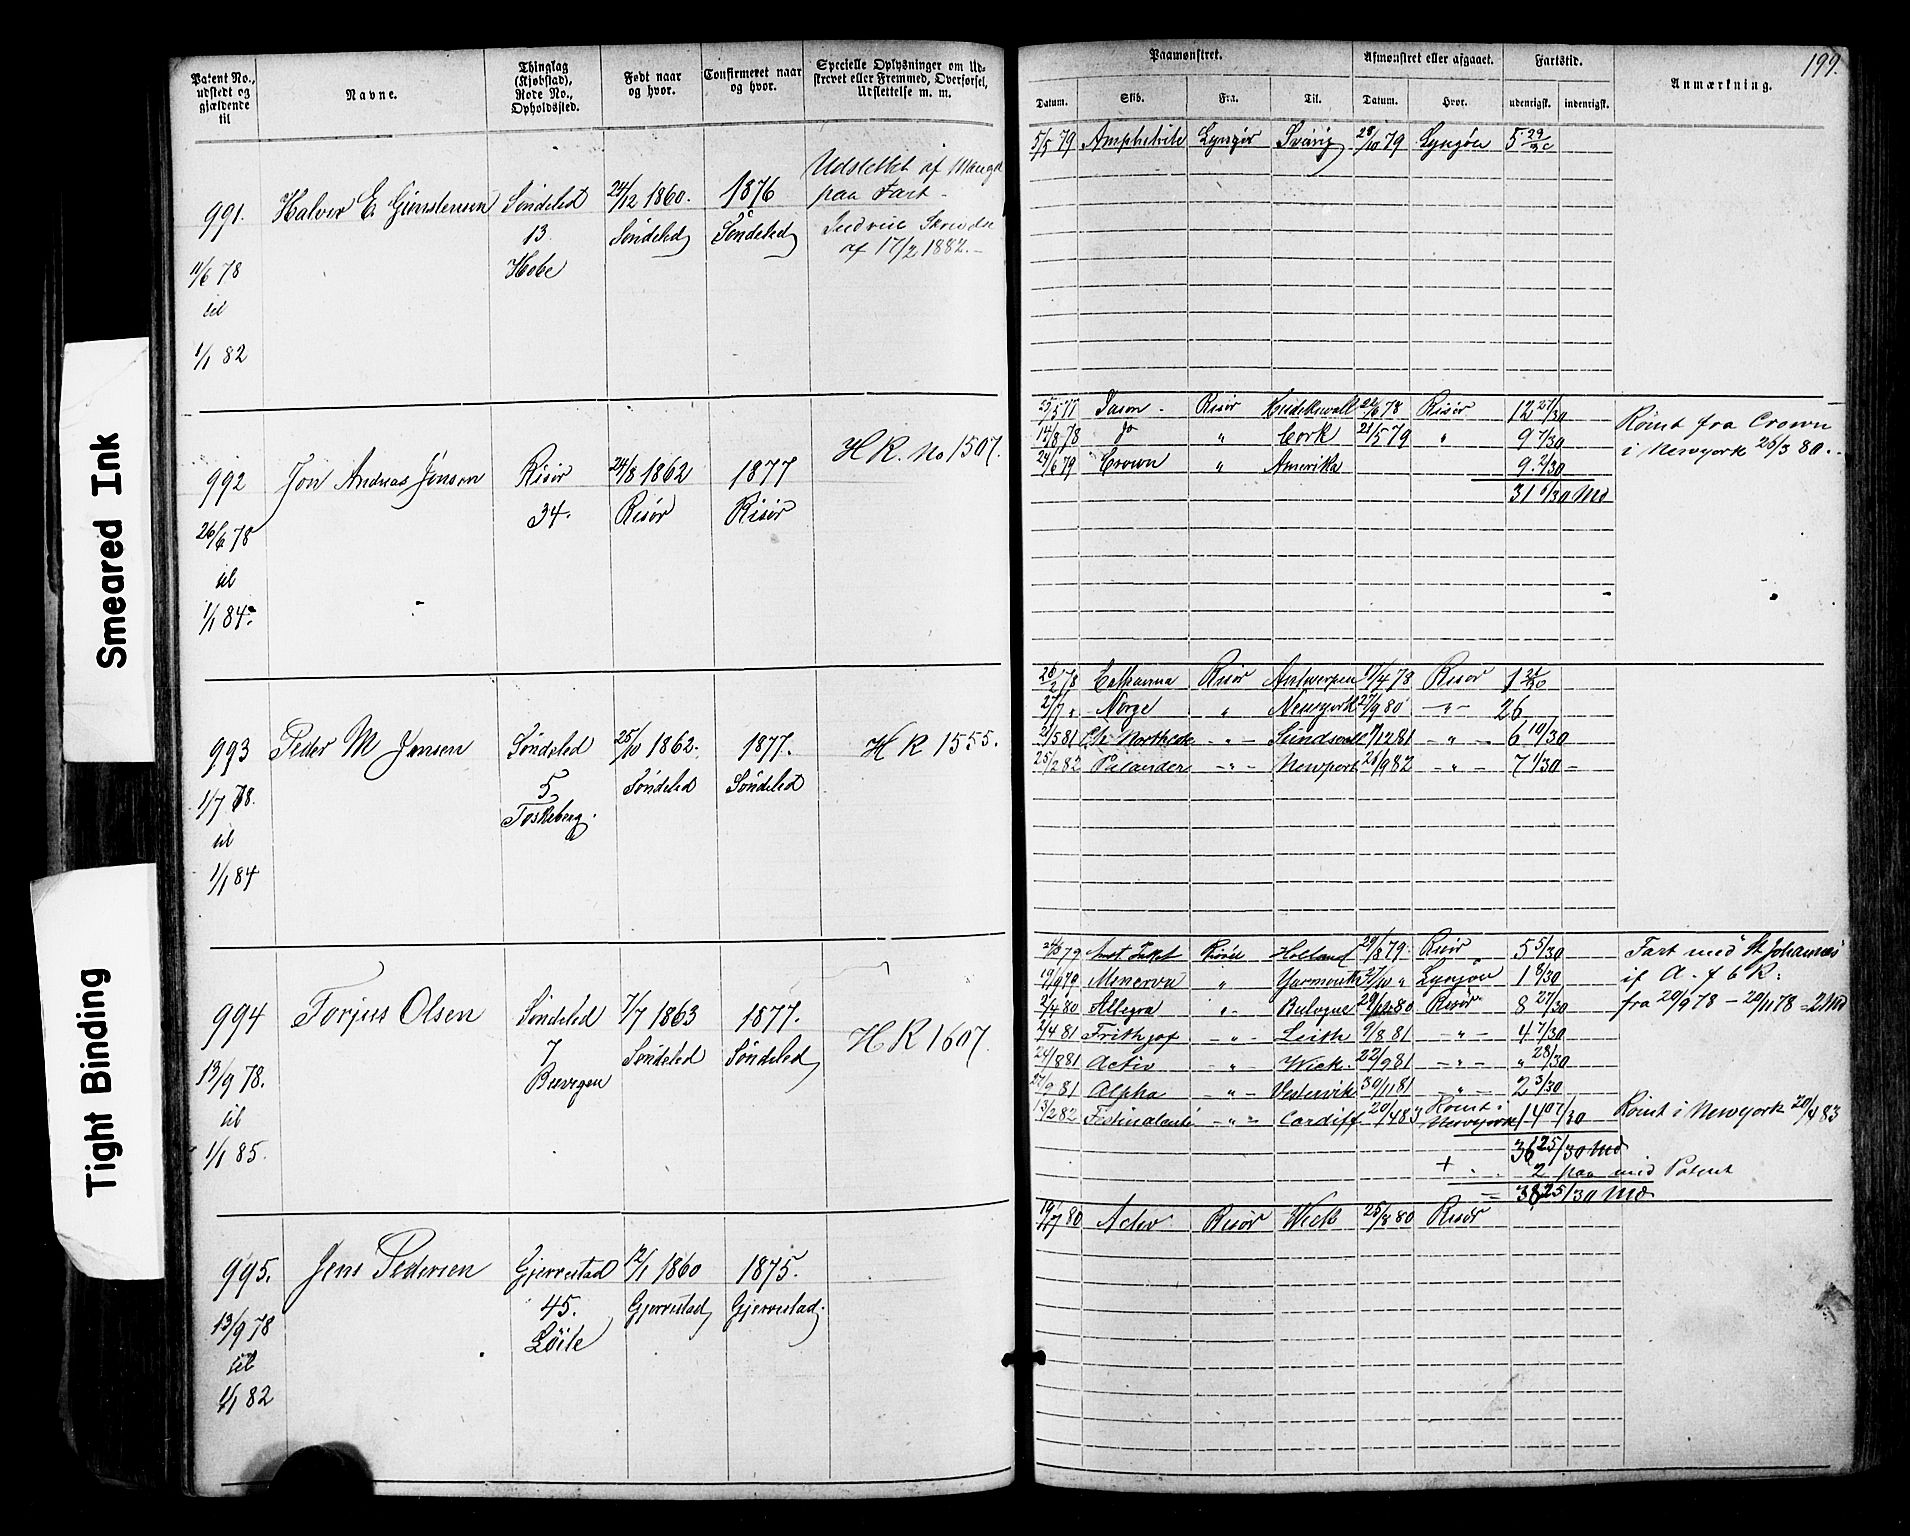 199.
Patent No., udstedt og gjældende til
Navne.
Thinglag (Kjøbstad), Rode No., Opholdssted.
Født naar og hvor.
Confirmeret naar og hvor.
Specielle Oplysninger om Udskrevet eller Fremmed, Overførsel, Udslettelse m. m.
Paamønstret.
Datum. Skib. Fra. Til.
Afmønstret eller afgaaet.
Datum. Hvor.
Fartstid.
udenrigsk. indenrigsk.
Anmærkning.
991. Halvor E. Søndeled 24/12 1860. 1876 Udslettet af Mangel
paa Fart
13. Søndeled Søndeled
af 17/2 1882.
11/6 78
til
1/1 82
5/5 79 Amphitrite Lyngør 28/10 79 5 29/30
992 Jon Andreas Jensen Risør 24/8 1862 1877 H R. No 1507.
34. Risør Risør
26/6 78
til
1/1 84
25/5 77 Jason Risør Hudikswall 78 Risør 12 27/30
14/8 78 Do " Cork 21/5 79 " 9 7/30
24/6 79 Crown " Amerika 9 2/30
31 6/30 Md
Rømt fra Crown
i Newyork 26/3 80.
993 Peder M Jensen Søndeled 25/10 1862. 1877. H R 1555.
5 Søndeled Søndeled
1/7 78.
til
1/1 84
26/2 78 Catharina Risør Antwerpen 17/4 78 Risør 1
Norge " Newyork 27/9 80 " 26
2/5 81 " Sundswall 12 81 " 6 10/30
25/2 82 Palander " Newport 26/9 82 " 7 1/30
994 Torjus Olsen Søndeled 7/7 1863 1877. H R 1607.
7 Søndeled Søndeled
13/9 78.
til
1/1 85.
79 Risør Holland 29/8 79. Risør 5 5/30
19/9 79 Minerva " Yarmouth 27/10 " 1 8/30
2/4 80 Allegra " 29/12 80 Risør 8 27/30
2/4 81 Frithjof " Leith 9/8 81 " 4 7/30
24/8 81 Activ " Wick. 22/9 81 " " 28/30
27/9 81 Alpha " Vestervik 30/11 81 " 2 3/30
13/2 82 " Cardiff 20/4 83 Rømt i Newyork 14 07/30
36 25/30 Md
+ 2 paa med Patent
= 38 25/30 Md
Fart med St Johannes
if A. f 6 R:
fra 20/9 78 - 20/11 78 = 2 Md
Rømt i Newyork 20/4 83
995. Jens Pedersen Gjerrestad 12/1 1860 1875.
45. Gjerrestad Gjerrestad.
Løite
13/9 78
til
1/1 82
19/7 80 Activ Risør Wick 25/8 80 Risør
Smeared Ink
Tight Binding